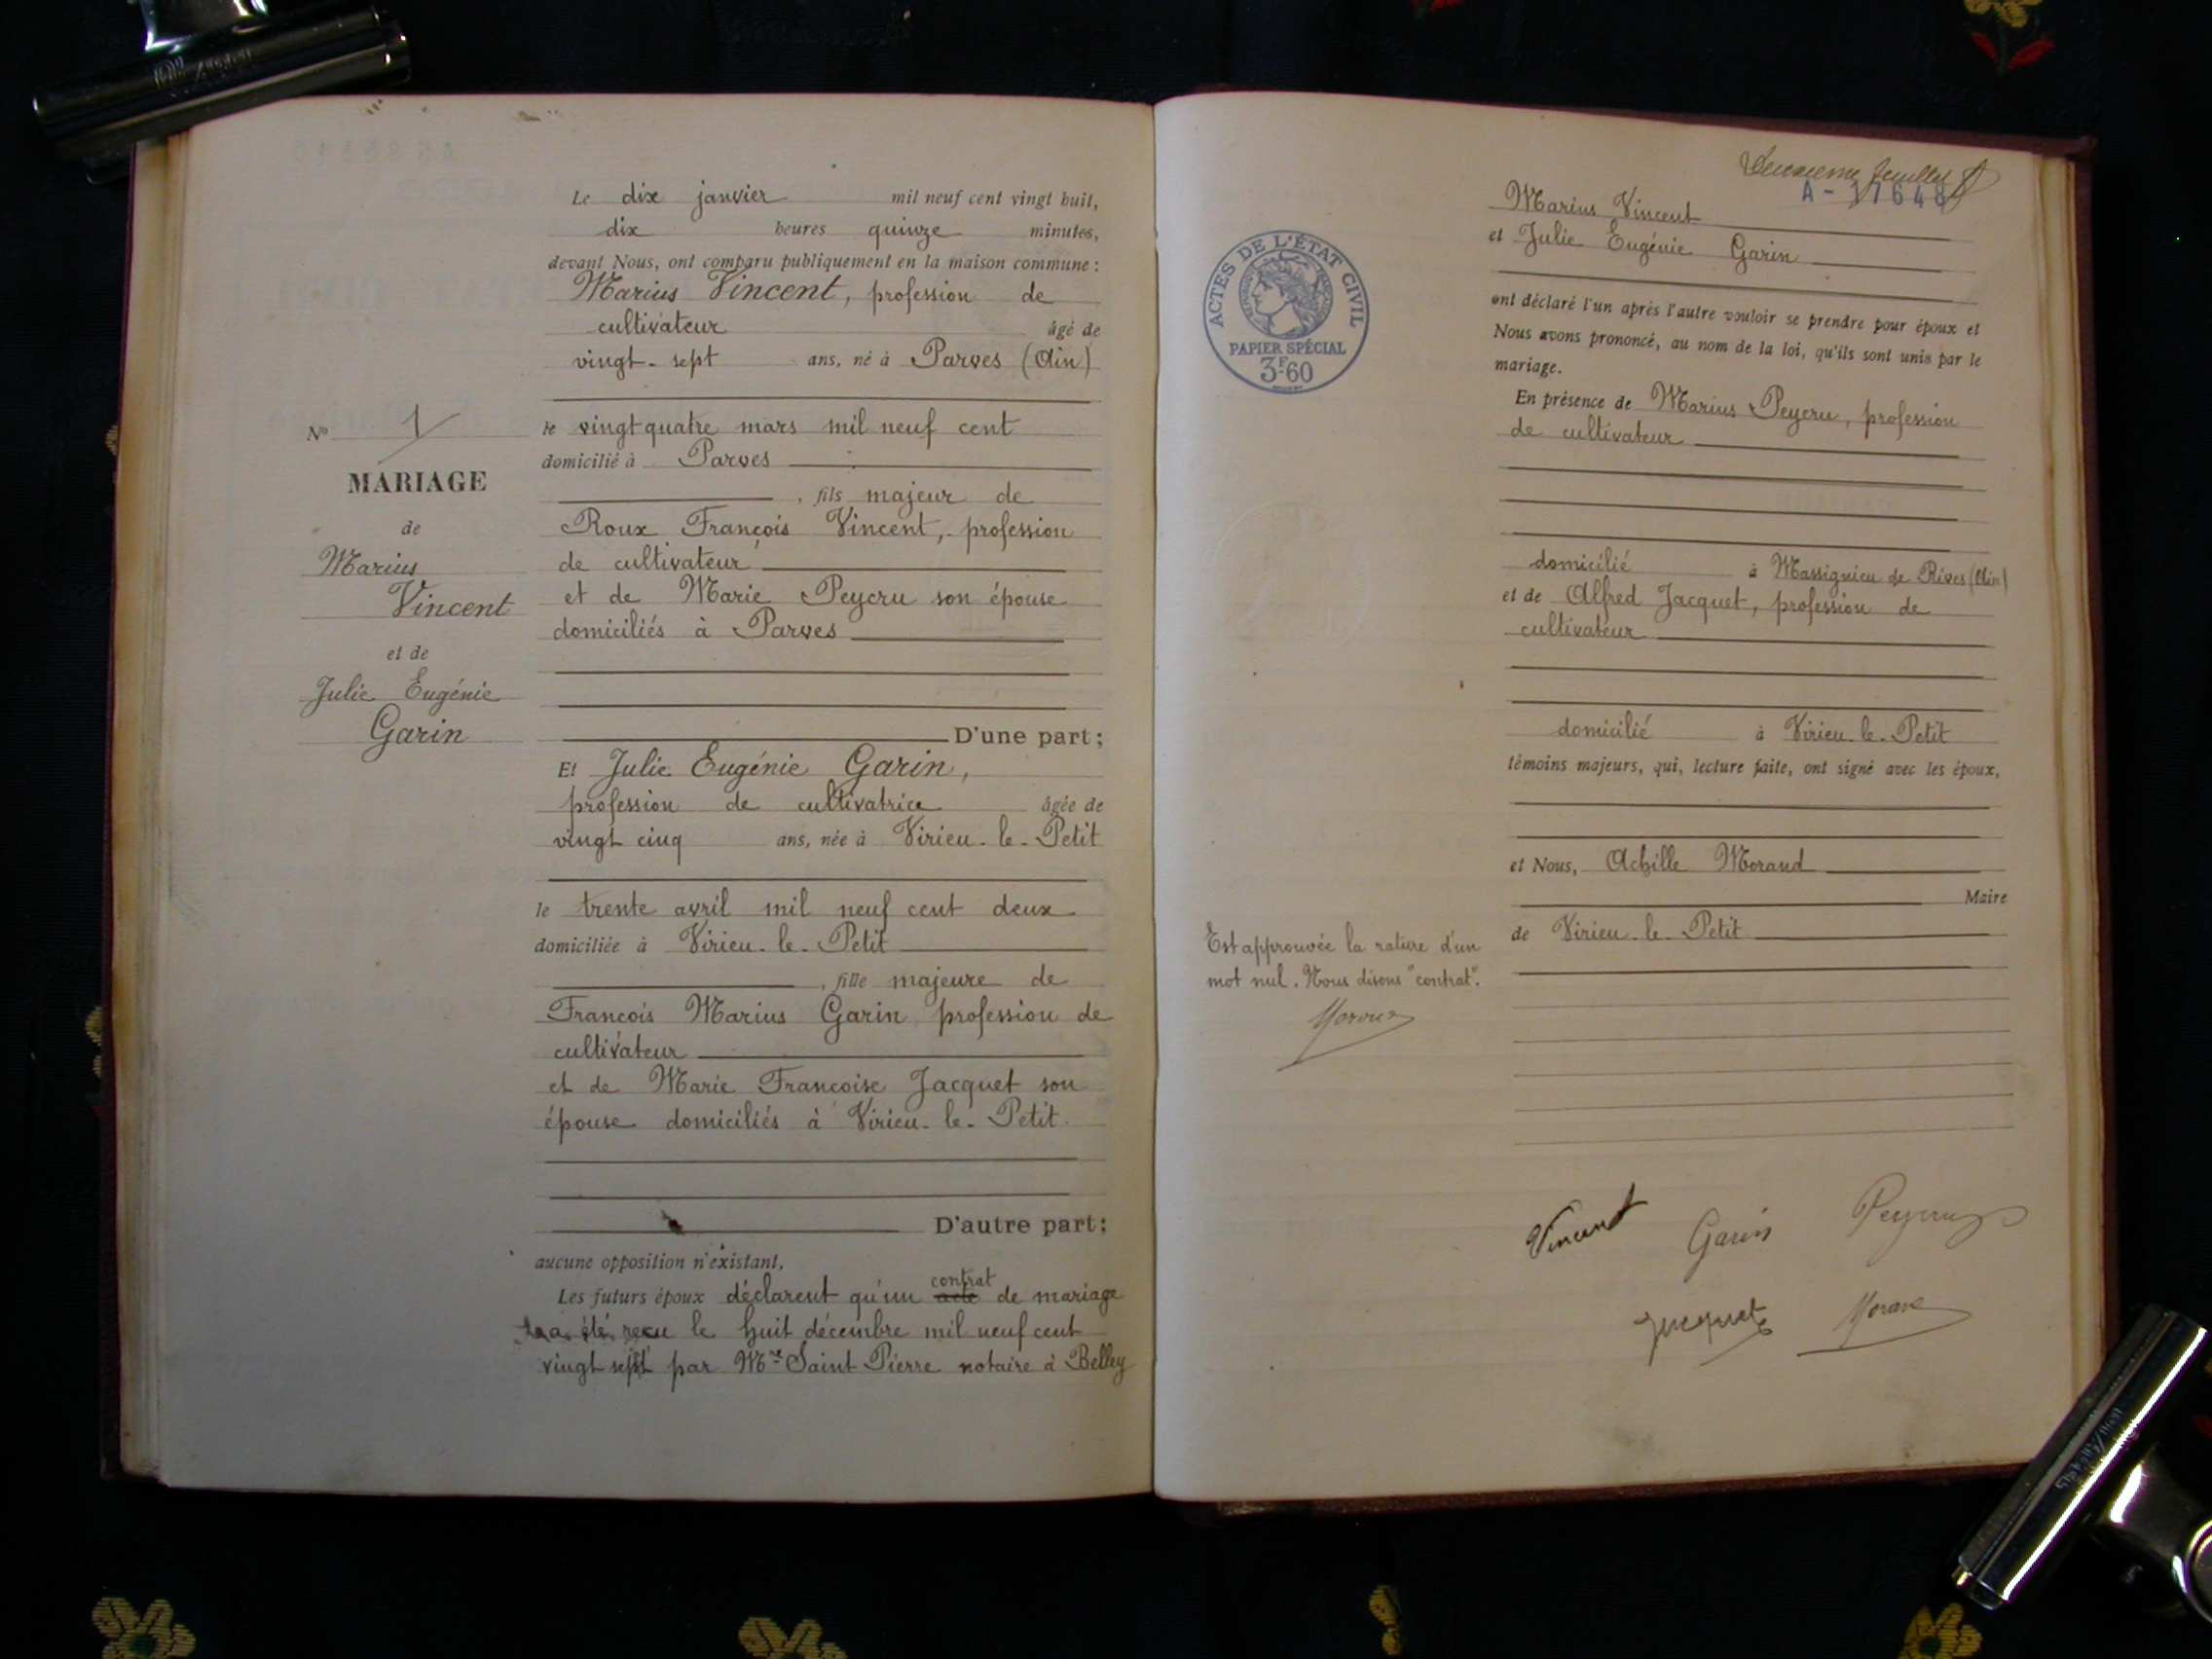 Le dix janvier mil neuf cent vingt huit,
dix heures quinze minutes,
devant Nous, ont comparu publiquement en la maison commune :
Marius Vincent, profession de
cultivateur âgé de
vingt-sept ans, né à Parves (Ain)
le vingt quatre mars mil neuf cent
domicilié à Parves
, fils majeur de
Roux François Vincent, profession
de cultivateur
et de Marie Peycru son épouse
domiciliés à Parves
D'une part ;
Et Julie Eugénie Garin,
profession de cultivatrice âgée de
vingt cinq ans, née à Virieu-le-Petit
le trente avril mil neuf cent deux
domiciliée à Virieu-le-Petit
, fille majeure de
François Marius Garin profession de
cultivateur
et de Marie Françoise Jacquet son
épouse domiciliés à Virieu-le-Petit.
D'autre part ;
aucune opposition n'existant,
contrat
Les futurs époux déclarent qu'un acte de mariage
a été reçu le huit décembre mil neuf cent
vingt sept par Mre Saint Pierre notaire à Belley
No 1
MARIAGE
de
Marius
Vincent
et de
Julie Eugénie
Garin
Deuxième feuillet
A-17648
Marius Vincent
et Julie Eugénie Garin
ont déclaré l'un après l'autre vouloir se prendre pour époux et
Nous avons prononcé, au nom de la loi, qu'ils sont unis par le
mariage.
En présence de Marius Peycru, profession
de cultivateur
domicilié à Massignieu de Rives (Ain)
et de Alfred Jacquet, profession de
cultivateur
domicilié à Virieu-le-Petit
témoins majeurs, qui, lecture faite, ont signé avec les époux,
et Nous, Achille Morand
Maire
de Virieu-le-Petit
ACTES DE L'ÉTAT CIVIL
PAPIER SPÉCIAL
3F.60
Est approuvée la rature d'un
mot nul. Nous disons "contrat".
Morand
Vincent Garin Peycru
Jacquet Morand